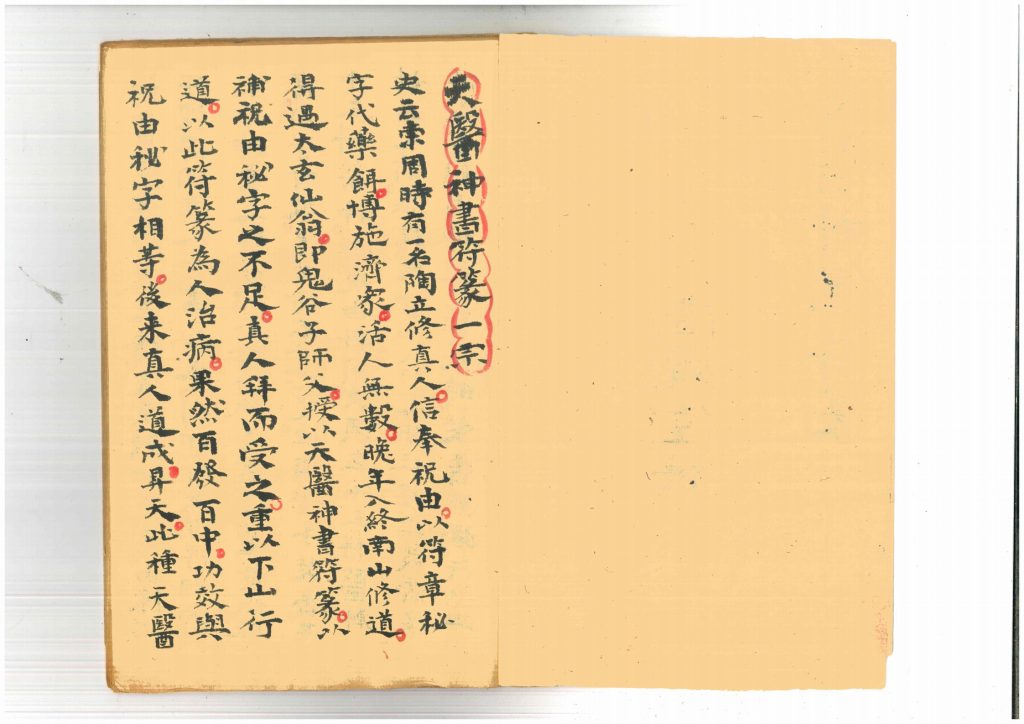 天醫神書符篆一宗
史云東周時有一名陶立修真人。信奉祝由。以符章秘
字代藥餌。博施濟眾。活人無數。晚年入終南山修道。
得遇太玄仙翁。即鬼谷子師父。授以天醫神書符篆。以
補祝由秘字之不足。真人拜而受之。重以下山行
道。以此符篆為人治病。果然百發百中。功效與
祝由秘字相等。後来真人道成。昇天。此種天醫